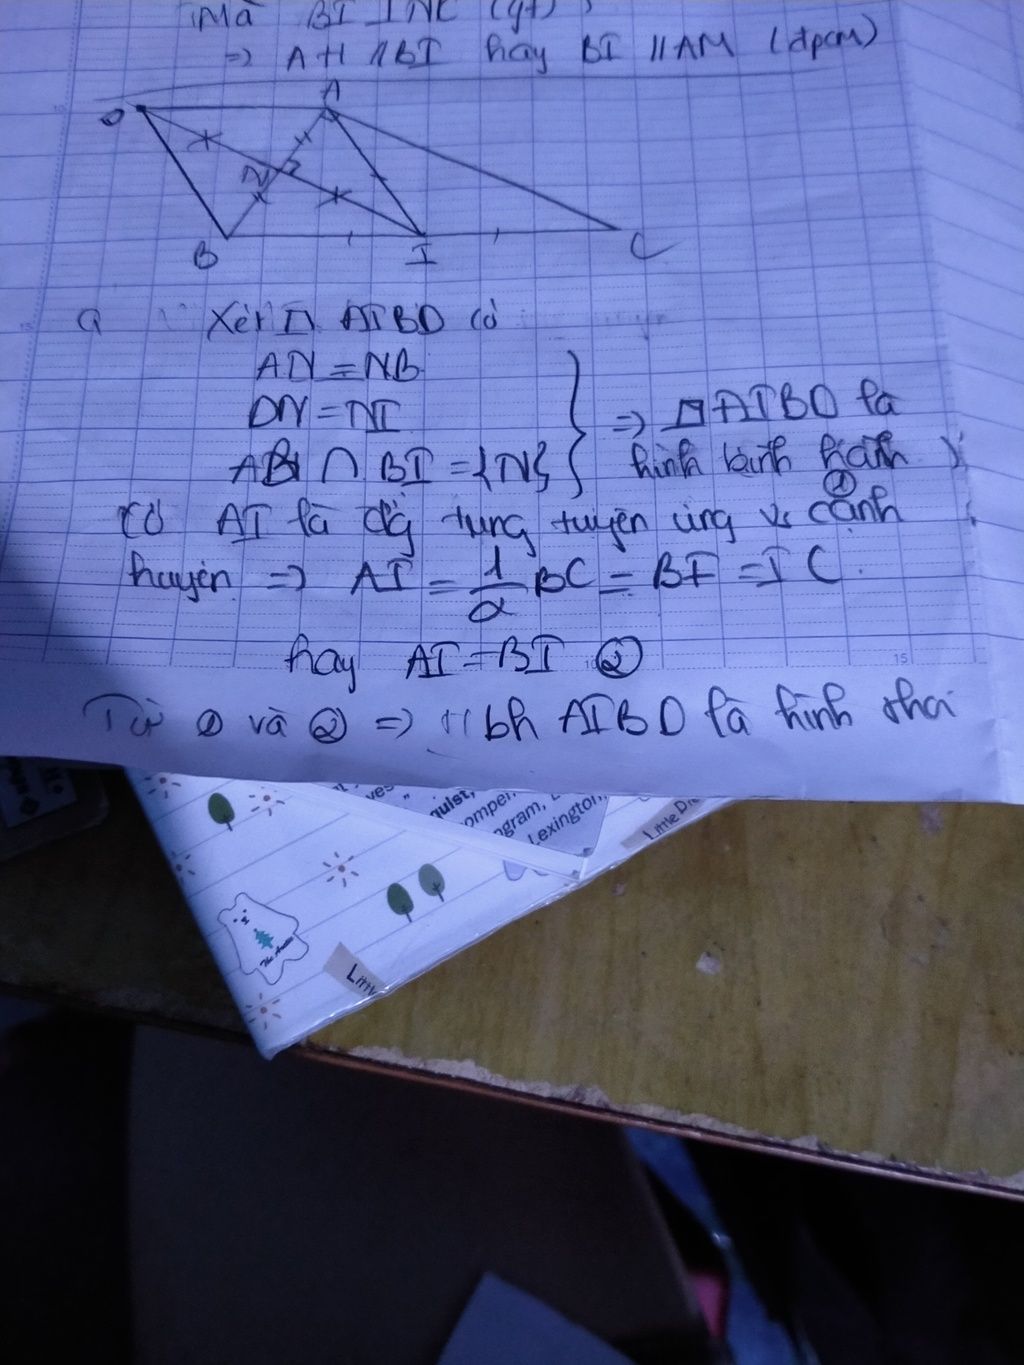 Mà BI ⊥ NC (gt)
=> AH // BI hay BI // AM (đpcm)
D
A
N
2
B
I
C
a
Xét AIBD có
AN = NB
DN = NI
AB ∩ BI = {N}
=> AIBD là
hình bình hành
①
Có AI là đg trung tuyến ứng vs cạnh
huyền => AI = 1/2 BC = BI = IC.
hay AI = BI ②
Từ ① và ② => hbh AIBD là hình thoi
10
15
15
yes
quist,
omper
ogram,
Lexington,
Little
The
Little